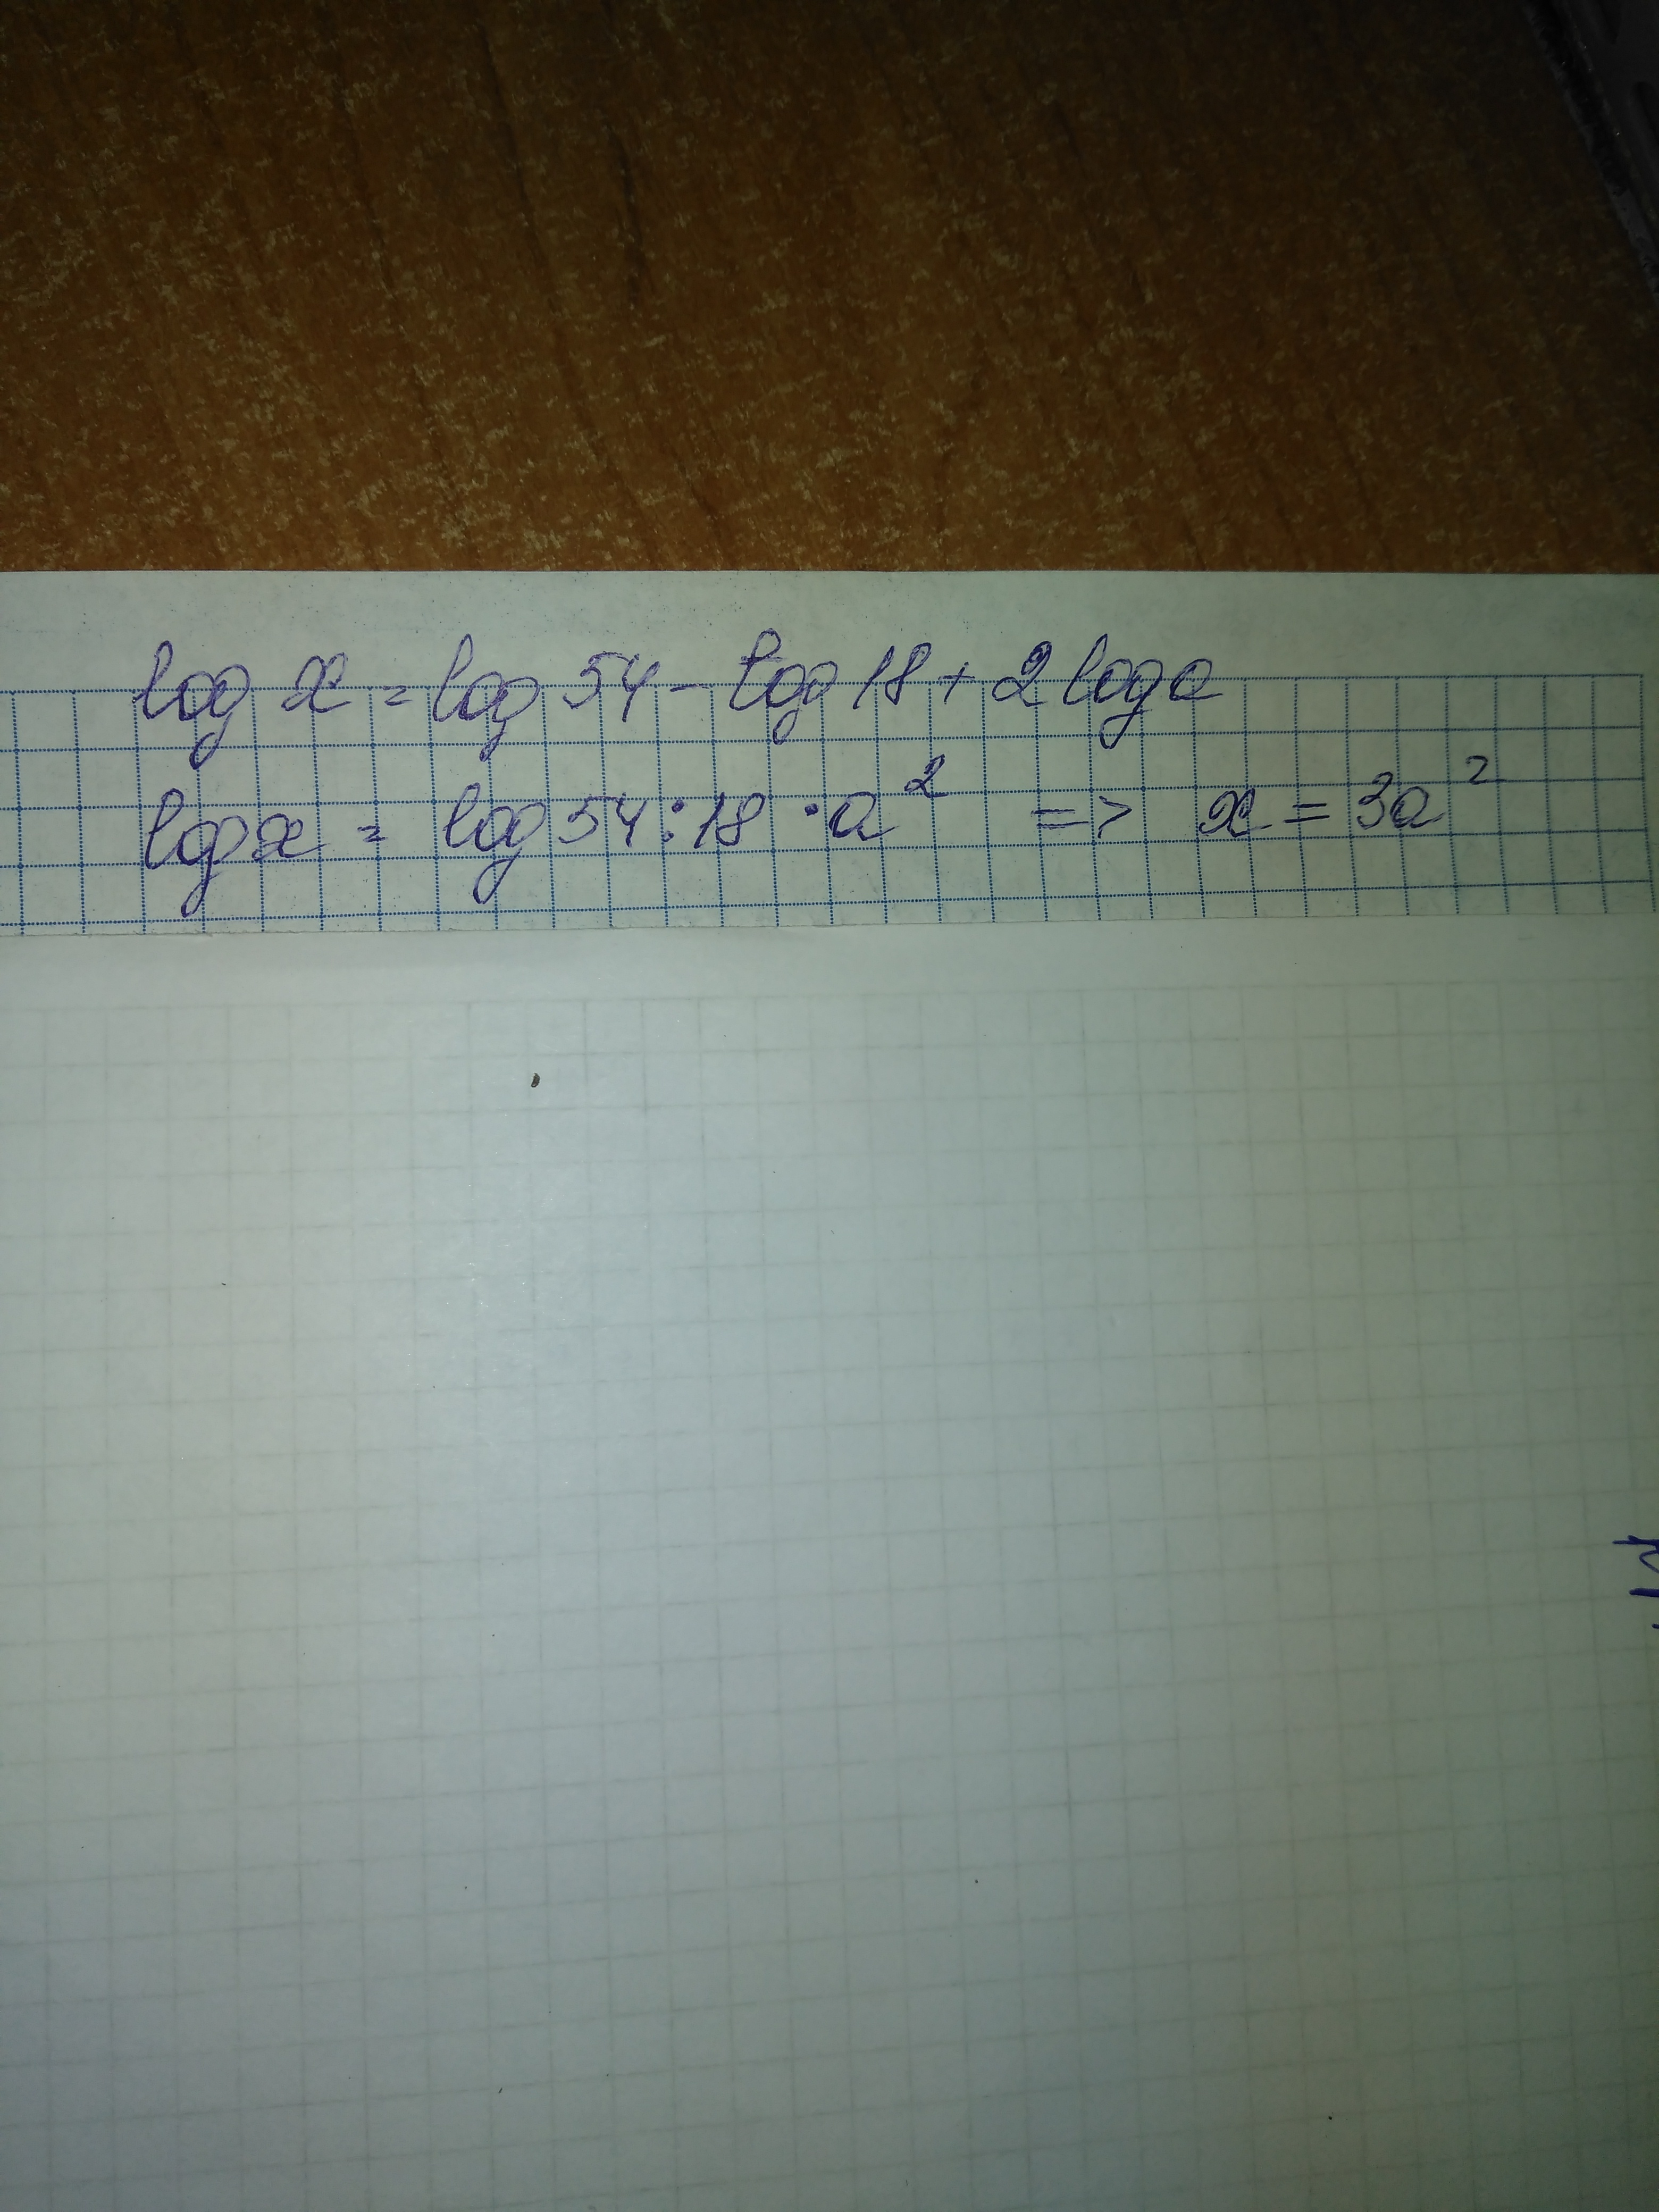 log x = log 54 - log 18 + 2 log a
log x = log 54 : 18 · a² => x = 3a²